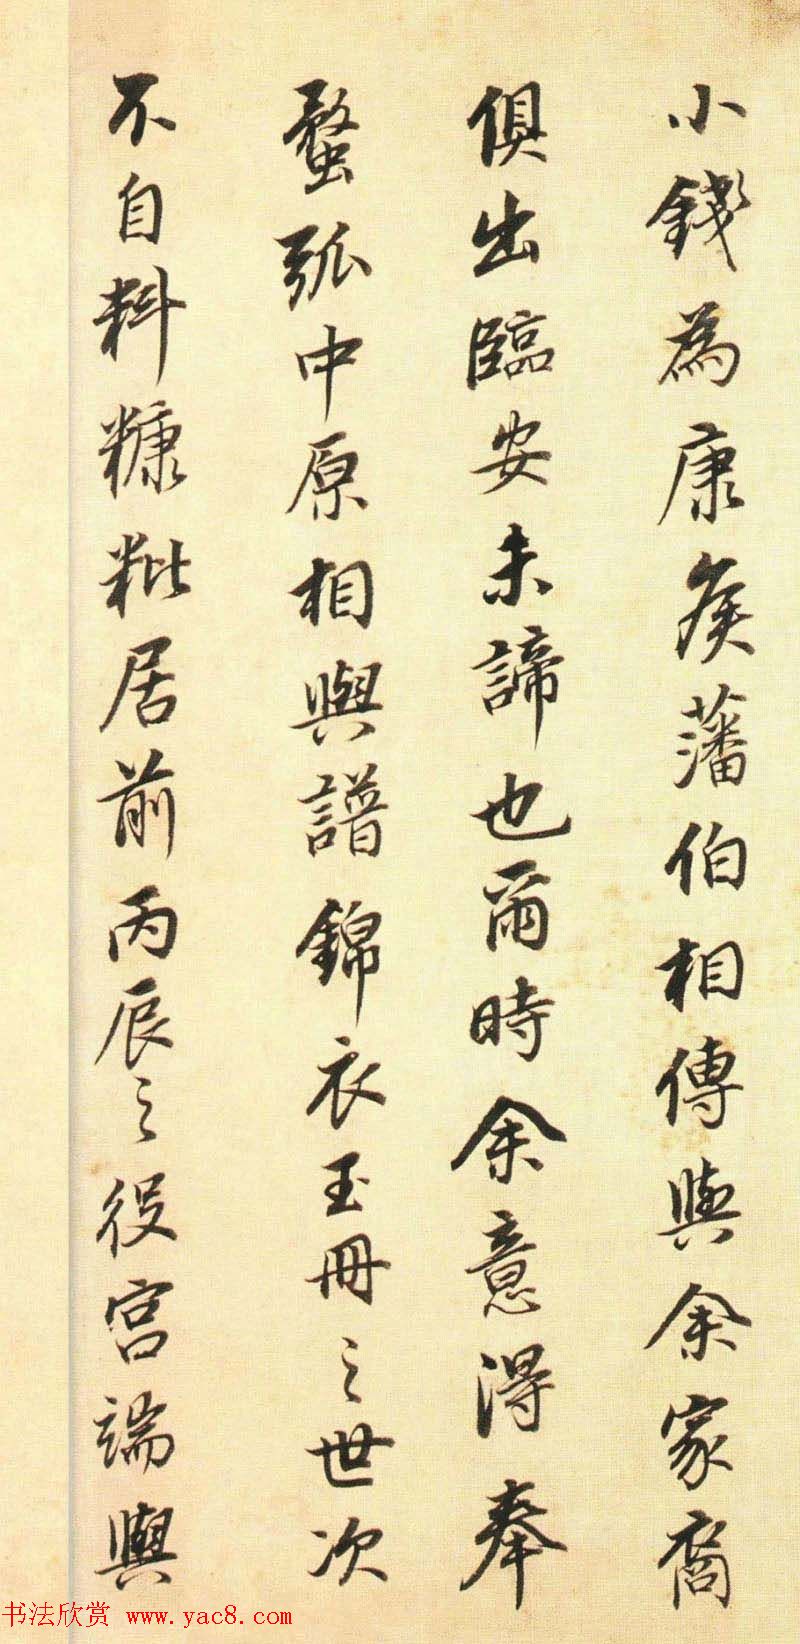 小錢為康侯藩伯相傳與余家裔
俱出臨安未諦也爾時余意得奉
蝥弧中原相與譜錦衣玉冊之世次
不自料糠粃居前丙辰之役宮端與
书法欣赏 www.yac8.com